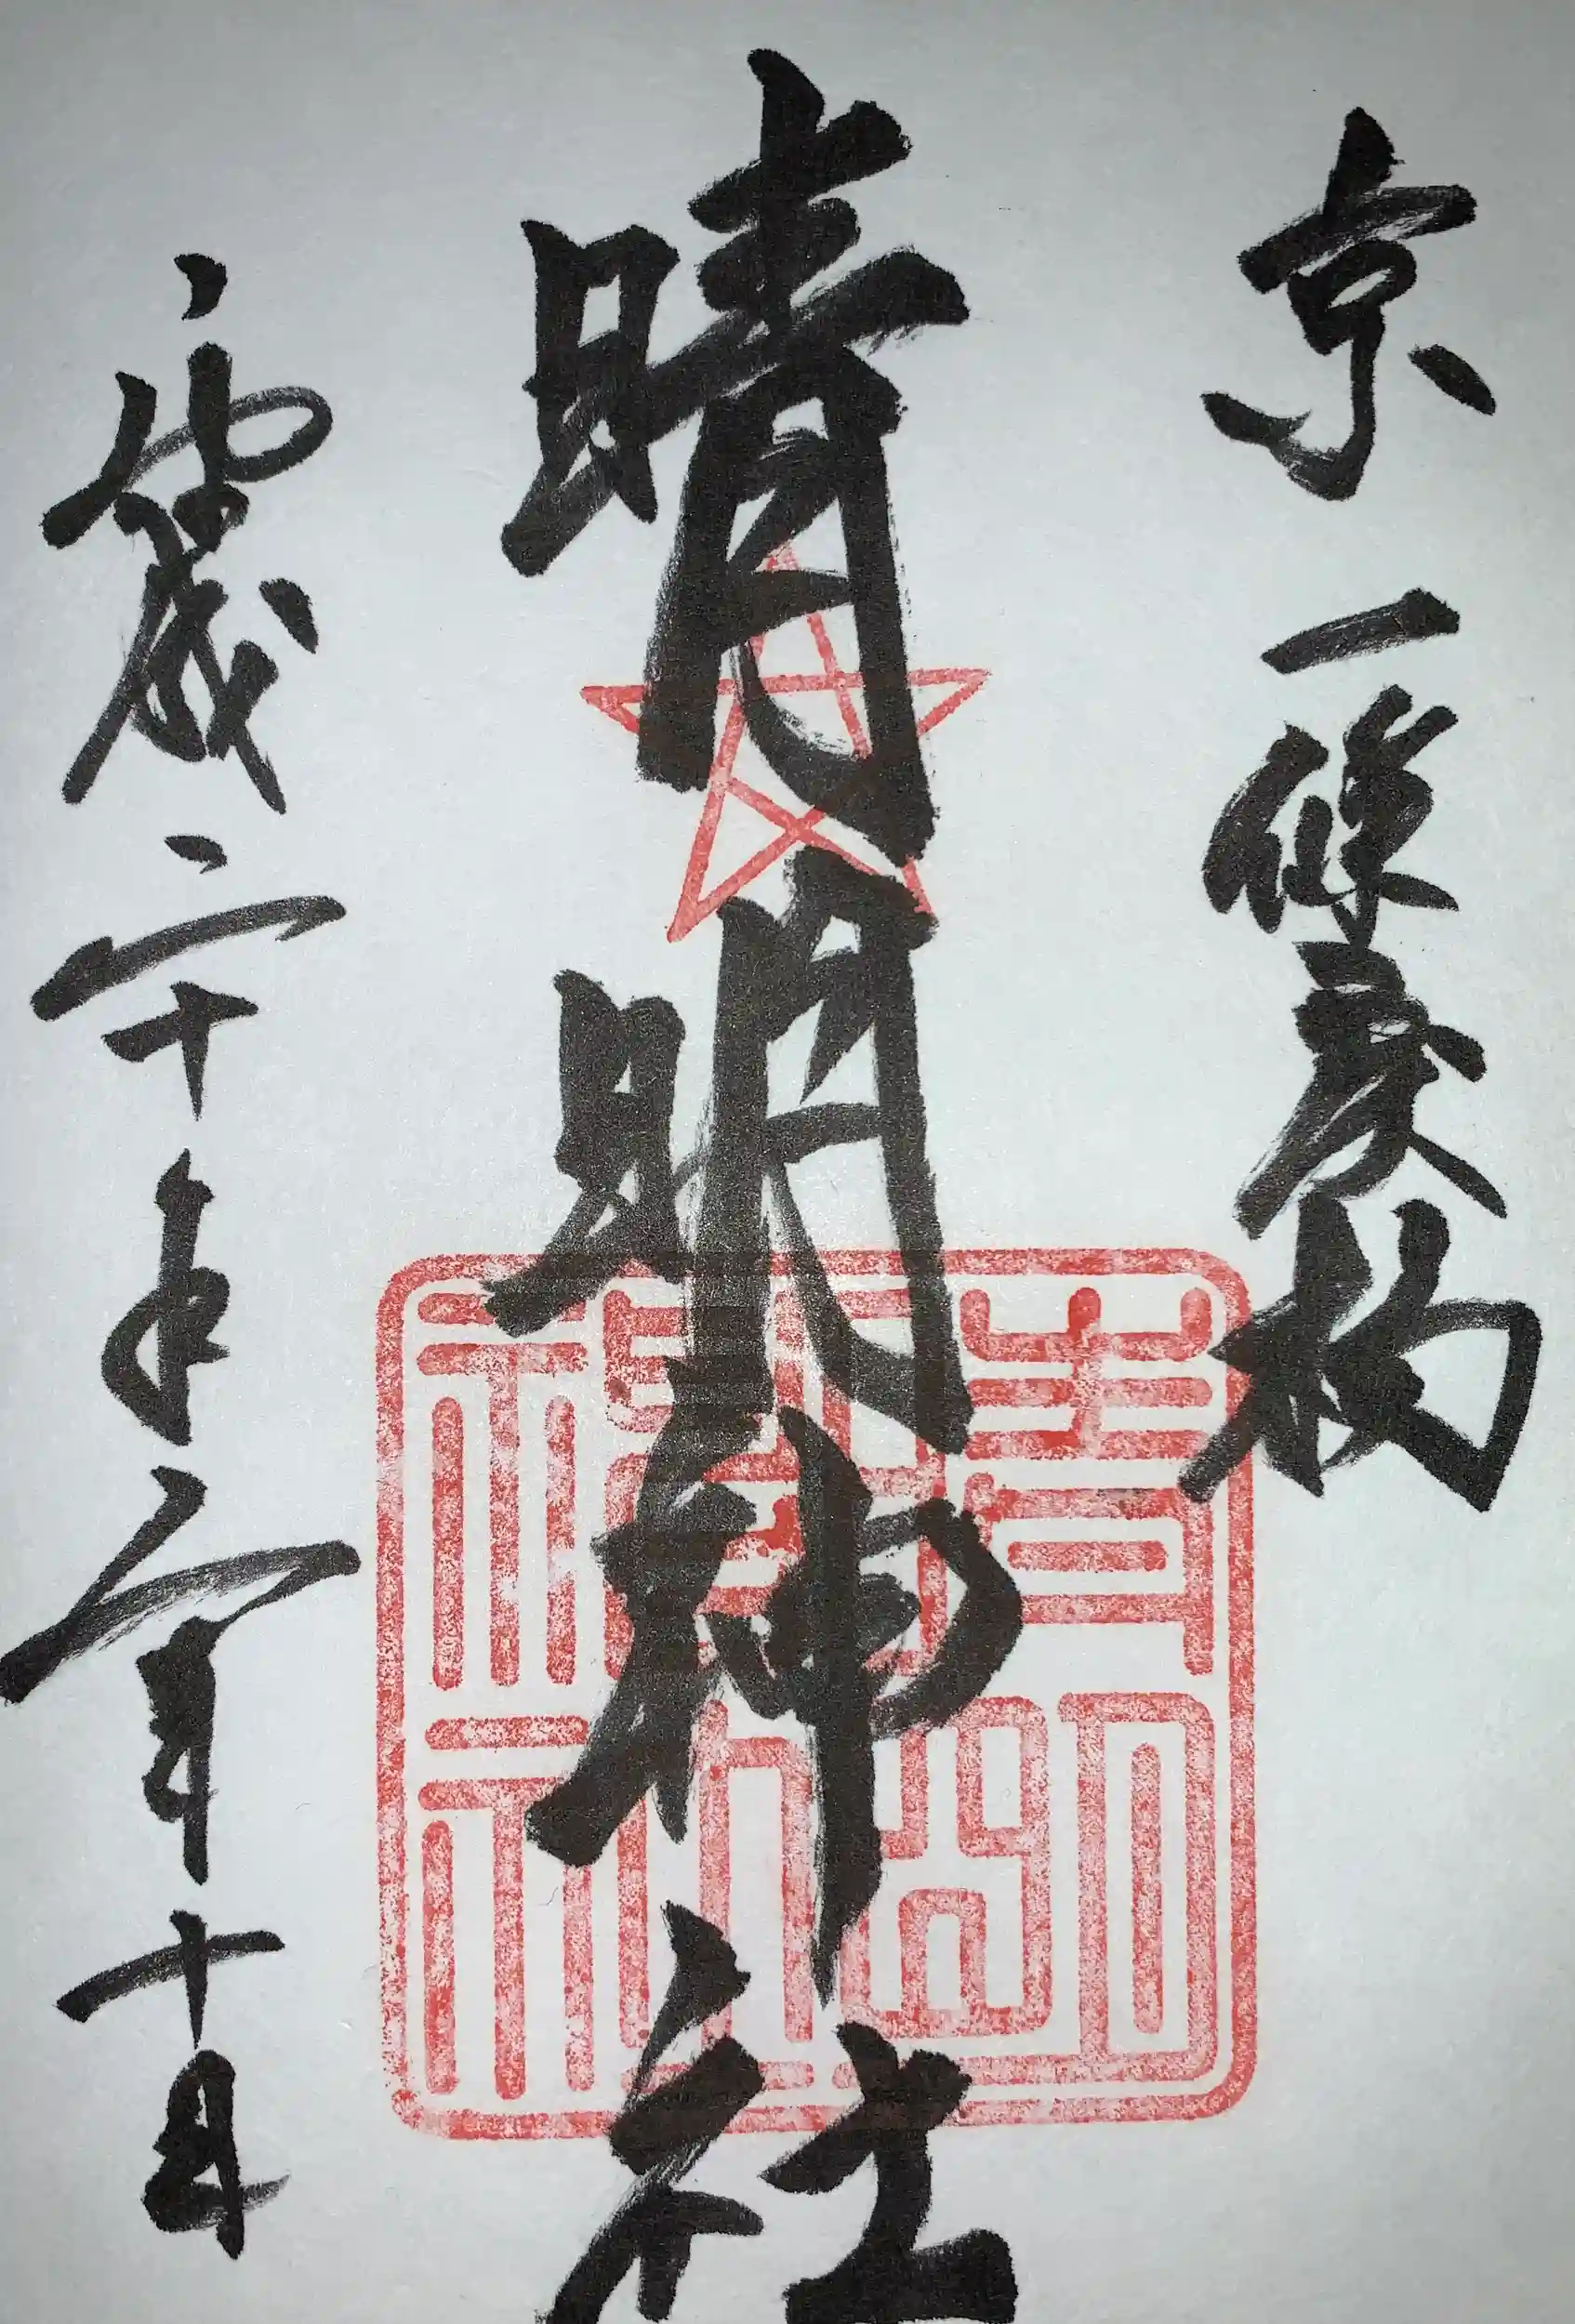 京一條戻橋
晴明神社
平成二十年 月十日
晴明
神社